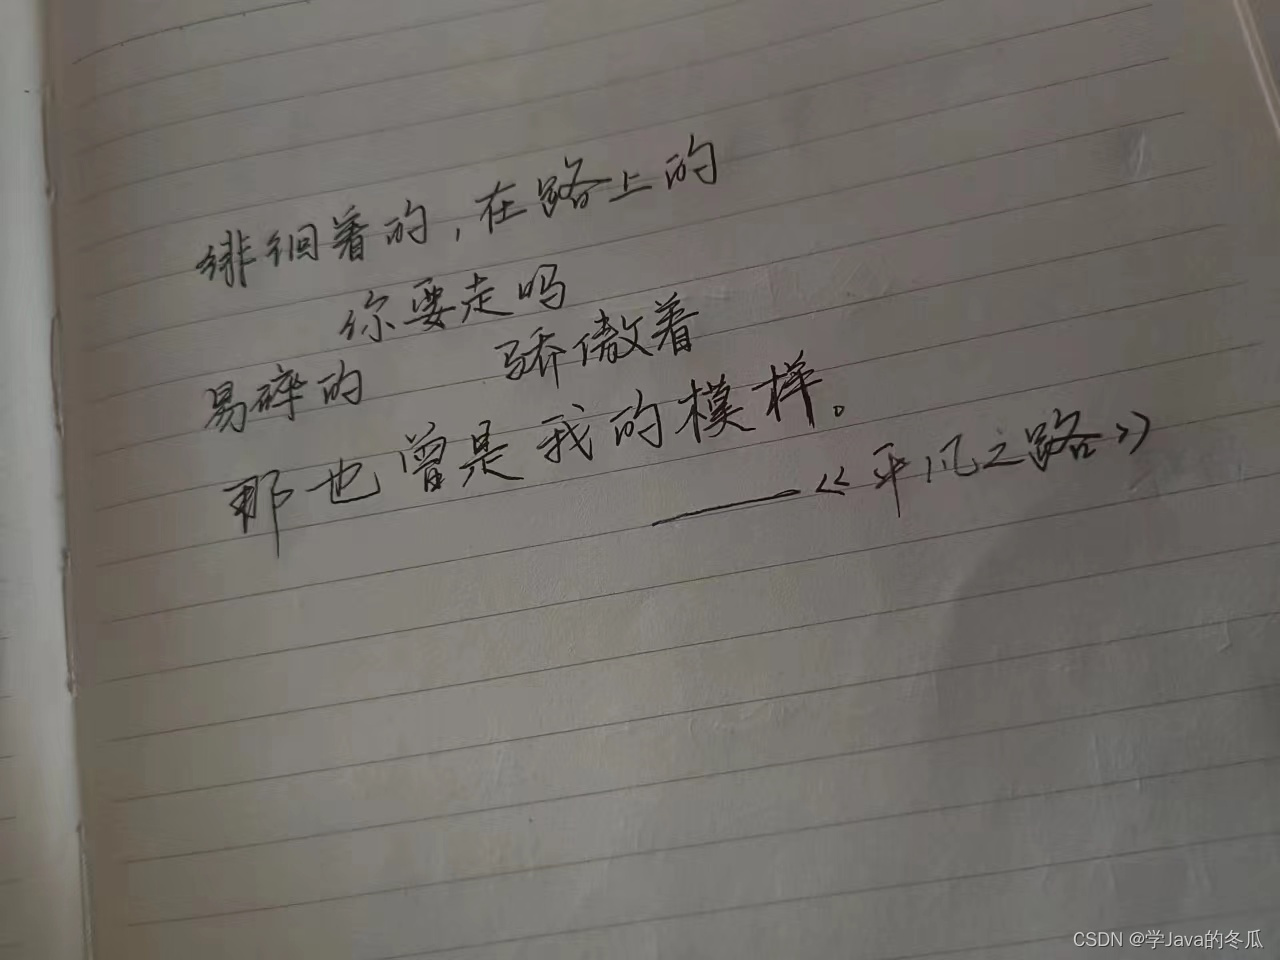 徘徊着的,在路上的
你要走吗
易碎的 骄傲着
那也曾是我的模样。
——《平凡之路》
CSDN @学Java的冬瓜